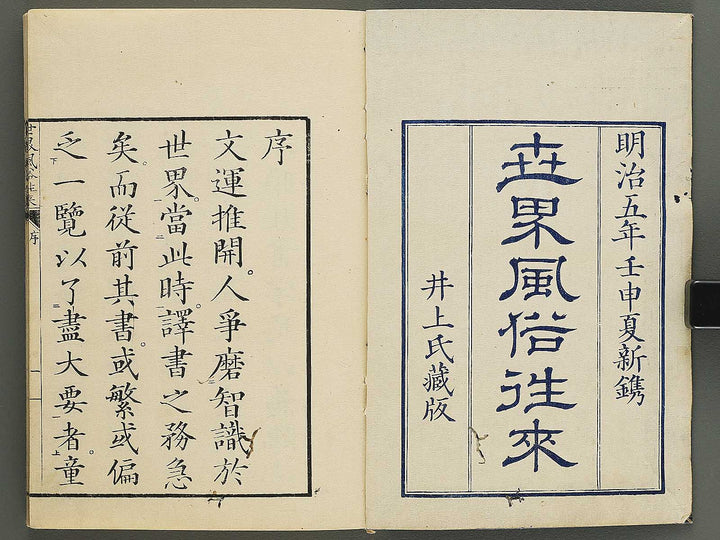 明治五年壬申夏新鐫
世界風俗往來
井上氏藏版
序
文運推開。人爭磨智識於
世界。當此時。譯書之務急
矣。而從前其書。或繁或偏
乏一覽以了盡大要者。童
世界風俗往來 序 一